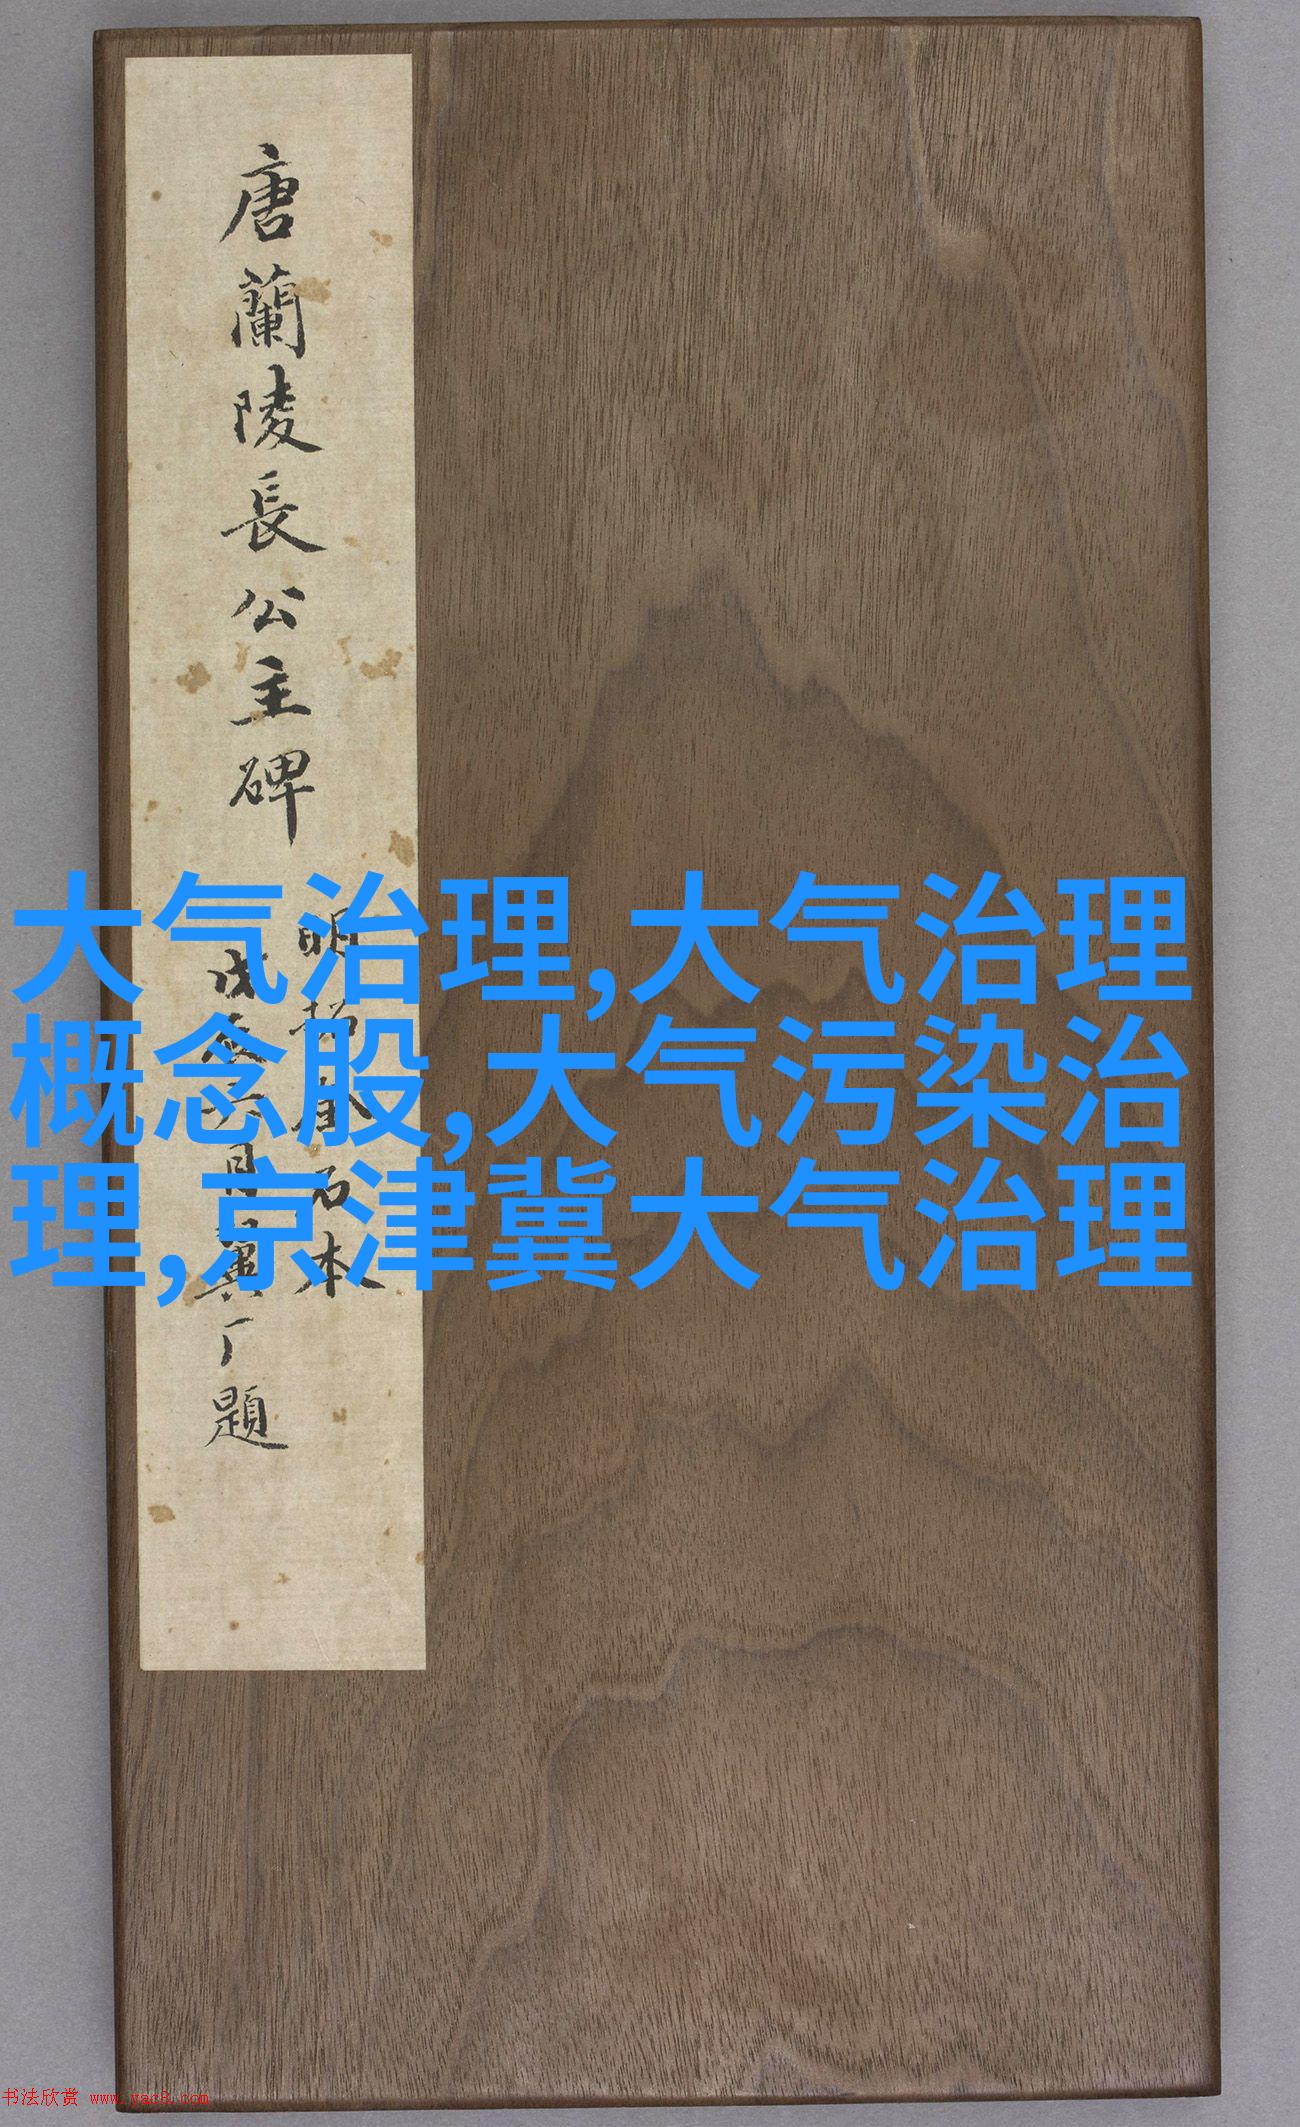 唐蘭陵長公主碑
明拓庫石本
戊辰六月翼厂題
大气治理,大气治理
概念股,大气污染治
理,京津冀大气治理
书法欣赏 www.yac8.com